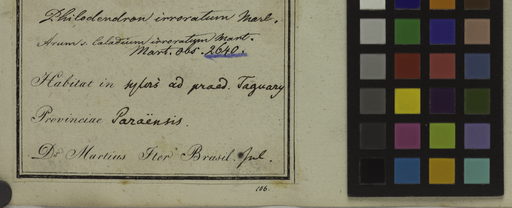 Philodendron irroratum Mart.
Arum s. Caladium irroratum Mart.
Mart. obs. 2640.
Habitat in sylvis ad praed. Taguary
Provinciae Paraënsis.
Dr. Martius Iter Brasil. Jul.
106.